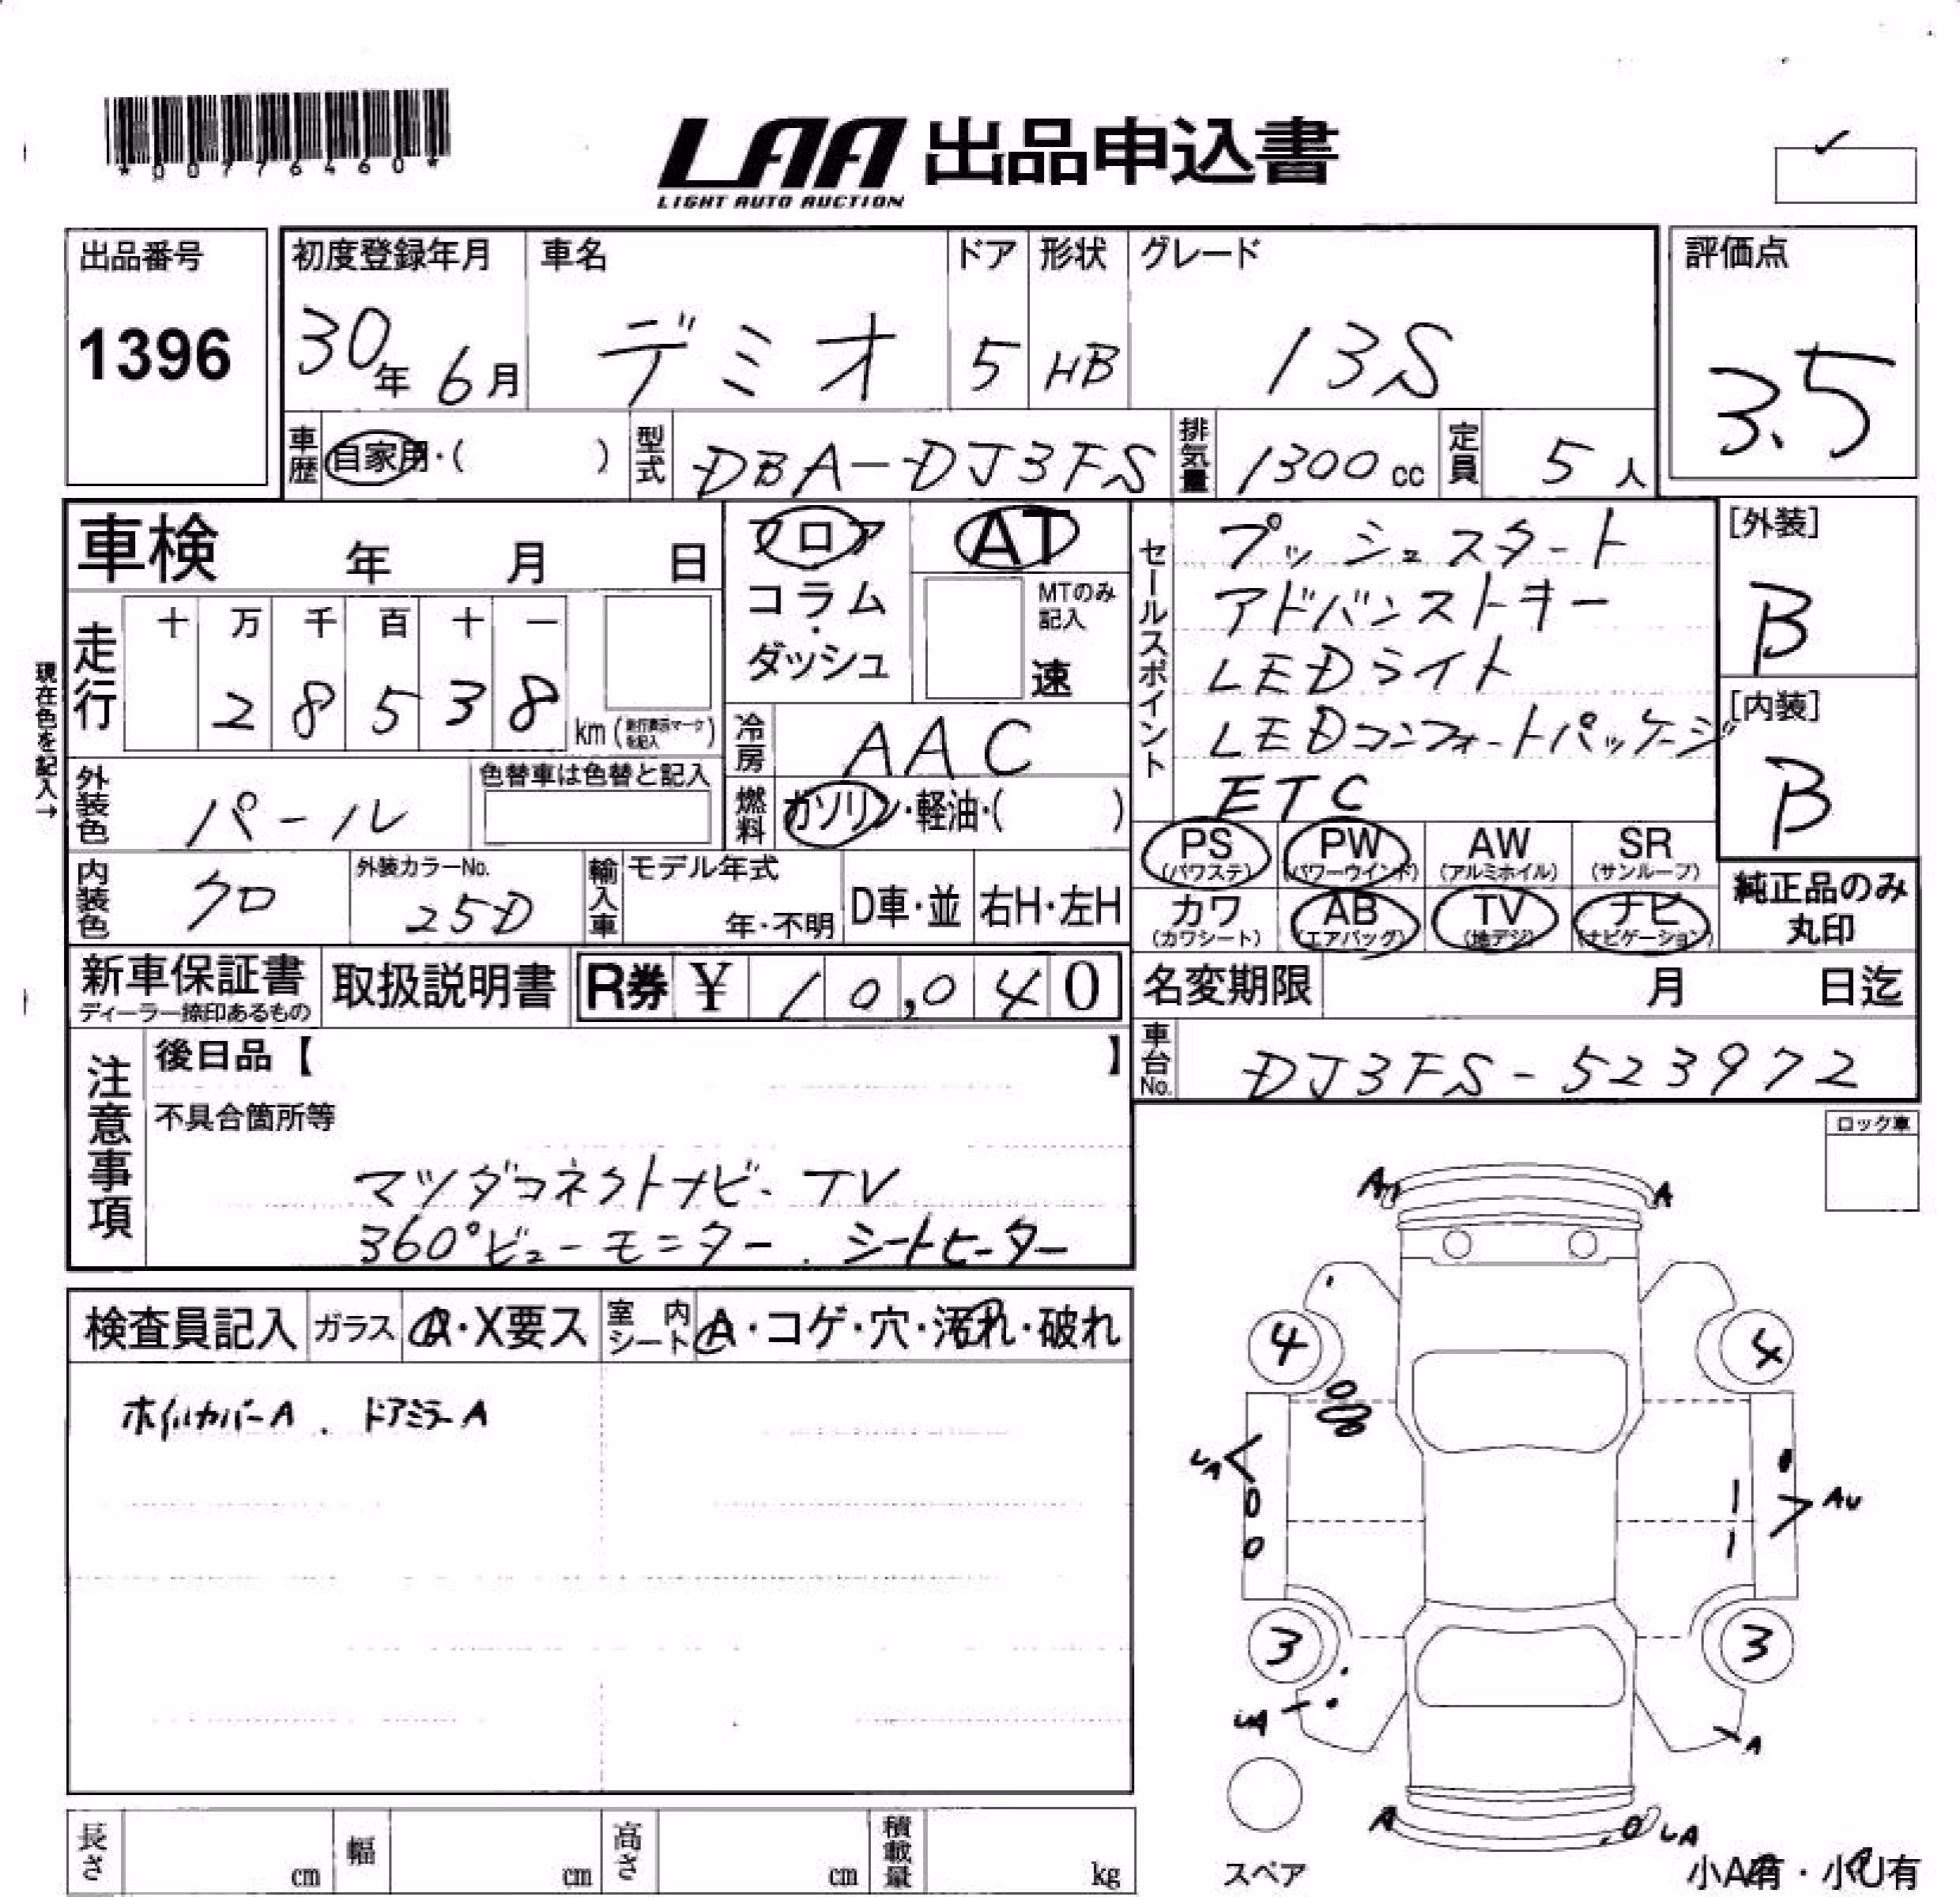 *00776460*
LAA 出品申込書
LIGHT AUTO AUCTION
出品番号
1396
初度登録年月
30年 6月
車名
デミオ
ドア
5
形状
HB
グレード
13S
評価点
3.5
車歴 自家用・( )
型式 DBA-DJ3FS
排気量 1300cc
定員 5人
車検 年 月 日
フロア
コラム・
ダッシュ
AT
MTのみ
記入
速
セールスポイント
プッシュスタート
アドバンストキー
LEDライト
LEDコンフォートパッケージ
ETC
[外装]
B
[内装]
B
現在色を記入→
走行
十 万 千 百 十 一
2 8 5 3 8
km (走行表示マークを記入)
冷房 AAC
外装色 パール
色替車は色替と記入
燃料 ガソリン・軽油・( )
PS
(パワステ)
PW
(パワーウインド)
AW
(アルミホイル)
SR
(サンルーフ)
カワ
(カワシート)
AB
(エアバッグ)
TV
(地デジ)
ナビ
(ナビゲーション)
純正品のみ
丸印
内装色 クロ
外装カラーNo.
25D
輸入車
モデル年式
年・不明
D車・並
右H・左H
新車保証書
ディーラー捺印あるもの
取扱説明書
R券 ¥ 10,040
名変期限 月 日迄
車台No. DJ3FS-523972
注意事項
後日品【 】
不具合箇所等
マツダコネクトナビ・TV
360°ビューモニター.シートヒーター
ロック車
検査員記入
ガラス
A・X要ス
室内
シート
A・コゲ・穴・汚れ・破れ
ホイルカバーA . ドアミラーA
A
A
4
4
LA
AU
3
3
LA
A
A
LA
スペア
小A有・小U有
長さ cm
幅 cm
高さ cm
積載量 kg